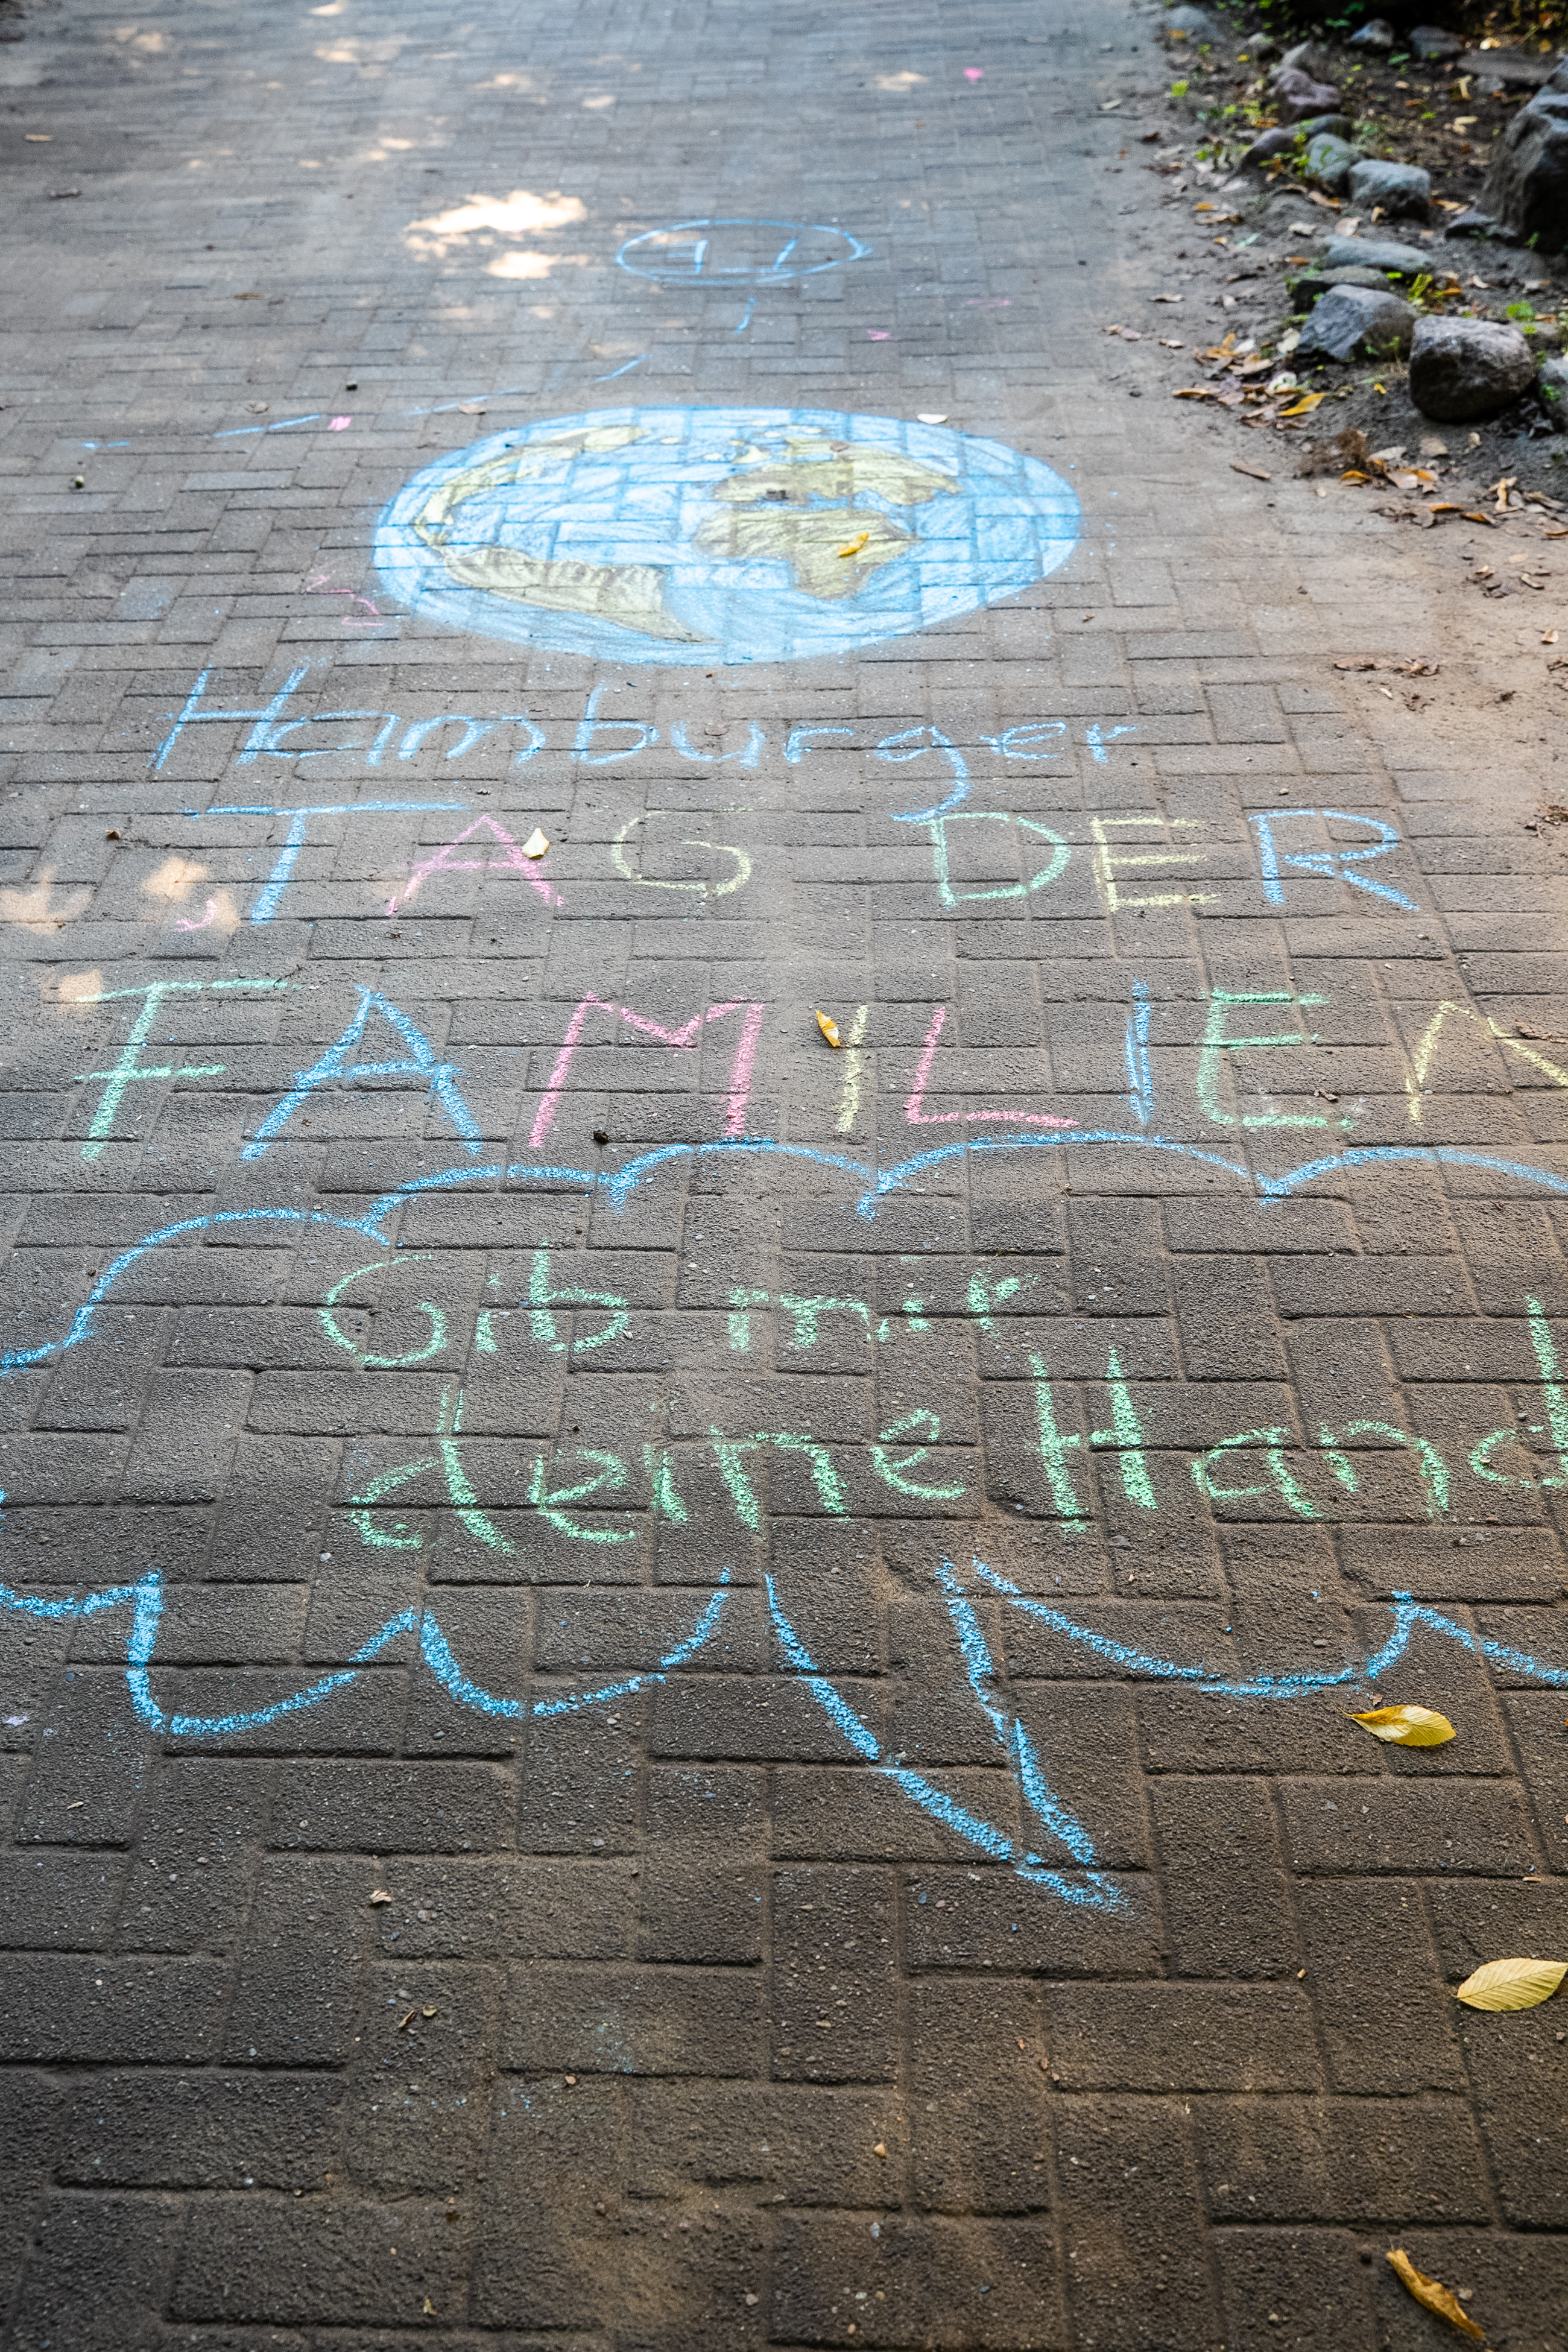 Hamburger
TAG DER
FAMILIEN
Gib mir
deine Hand